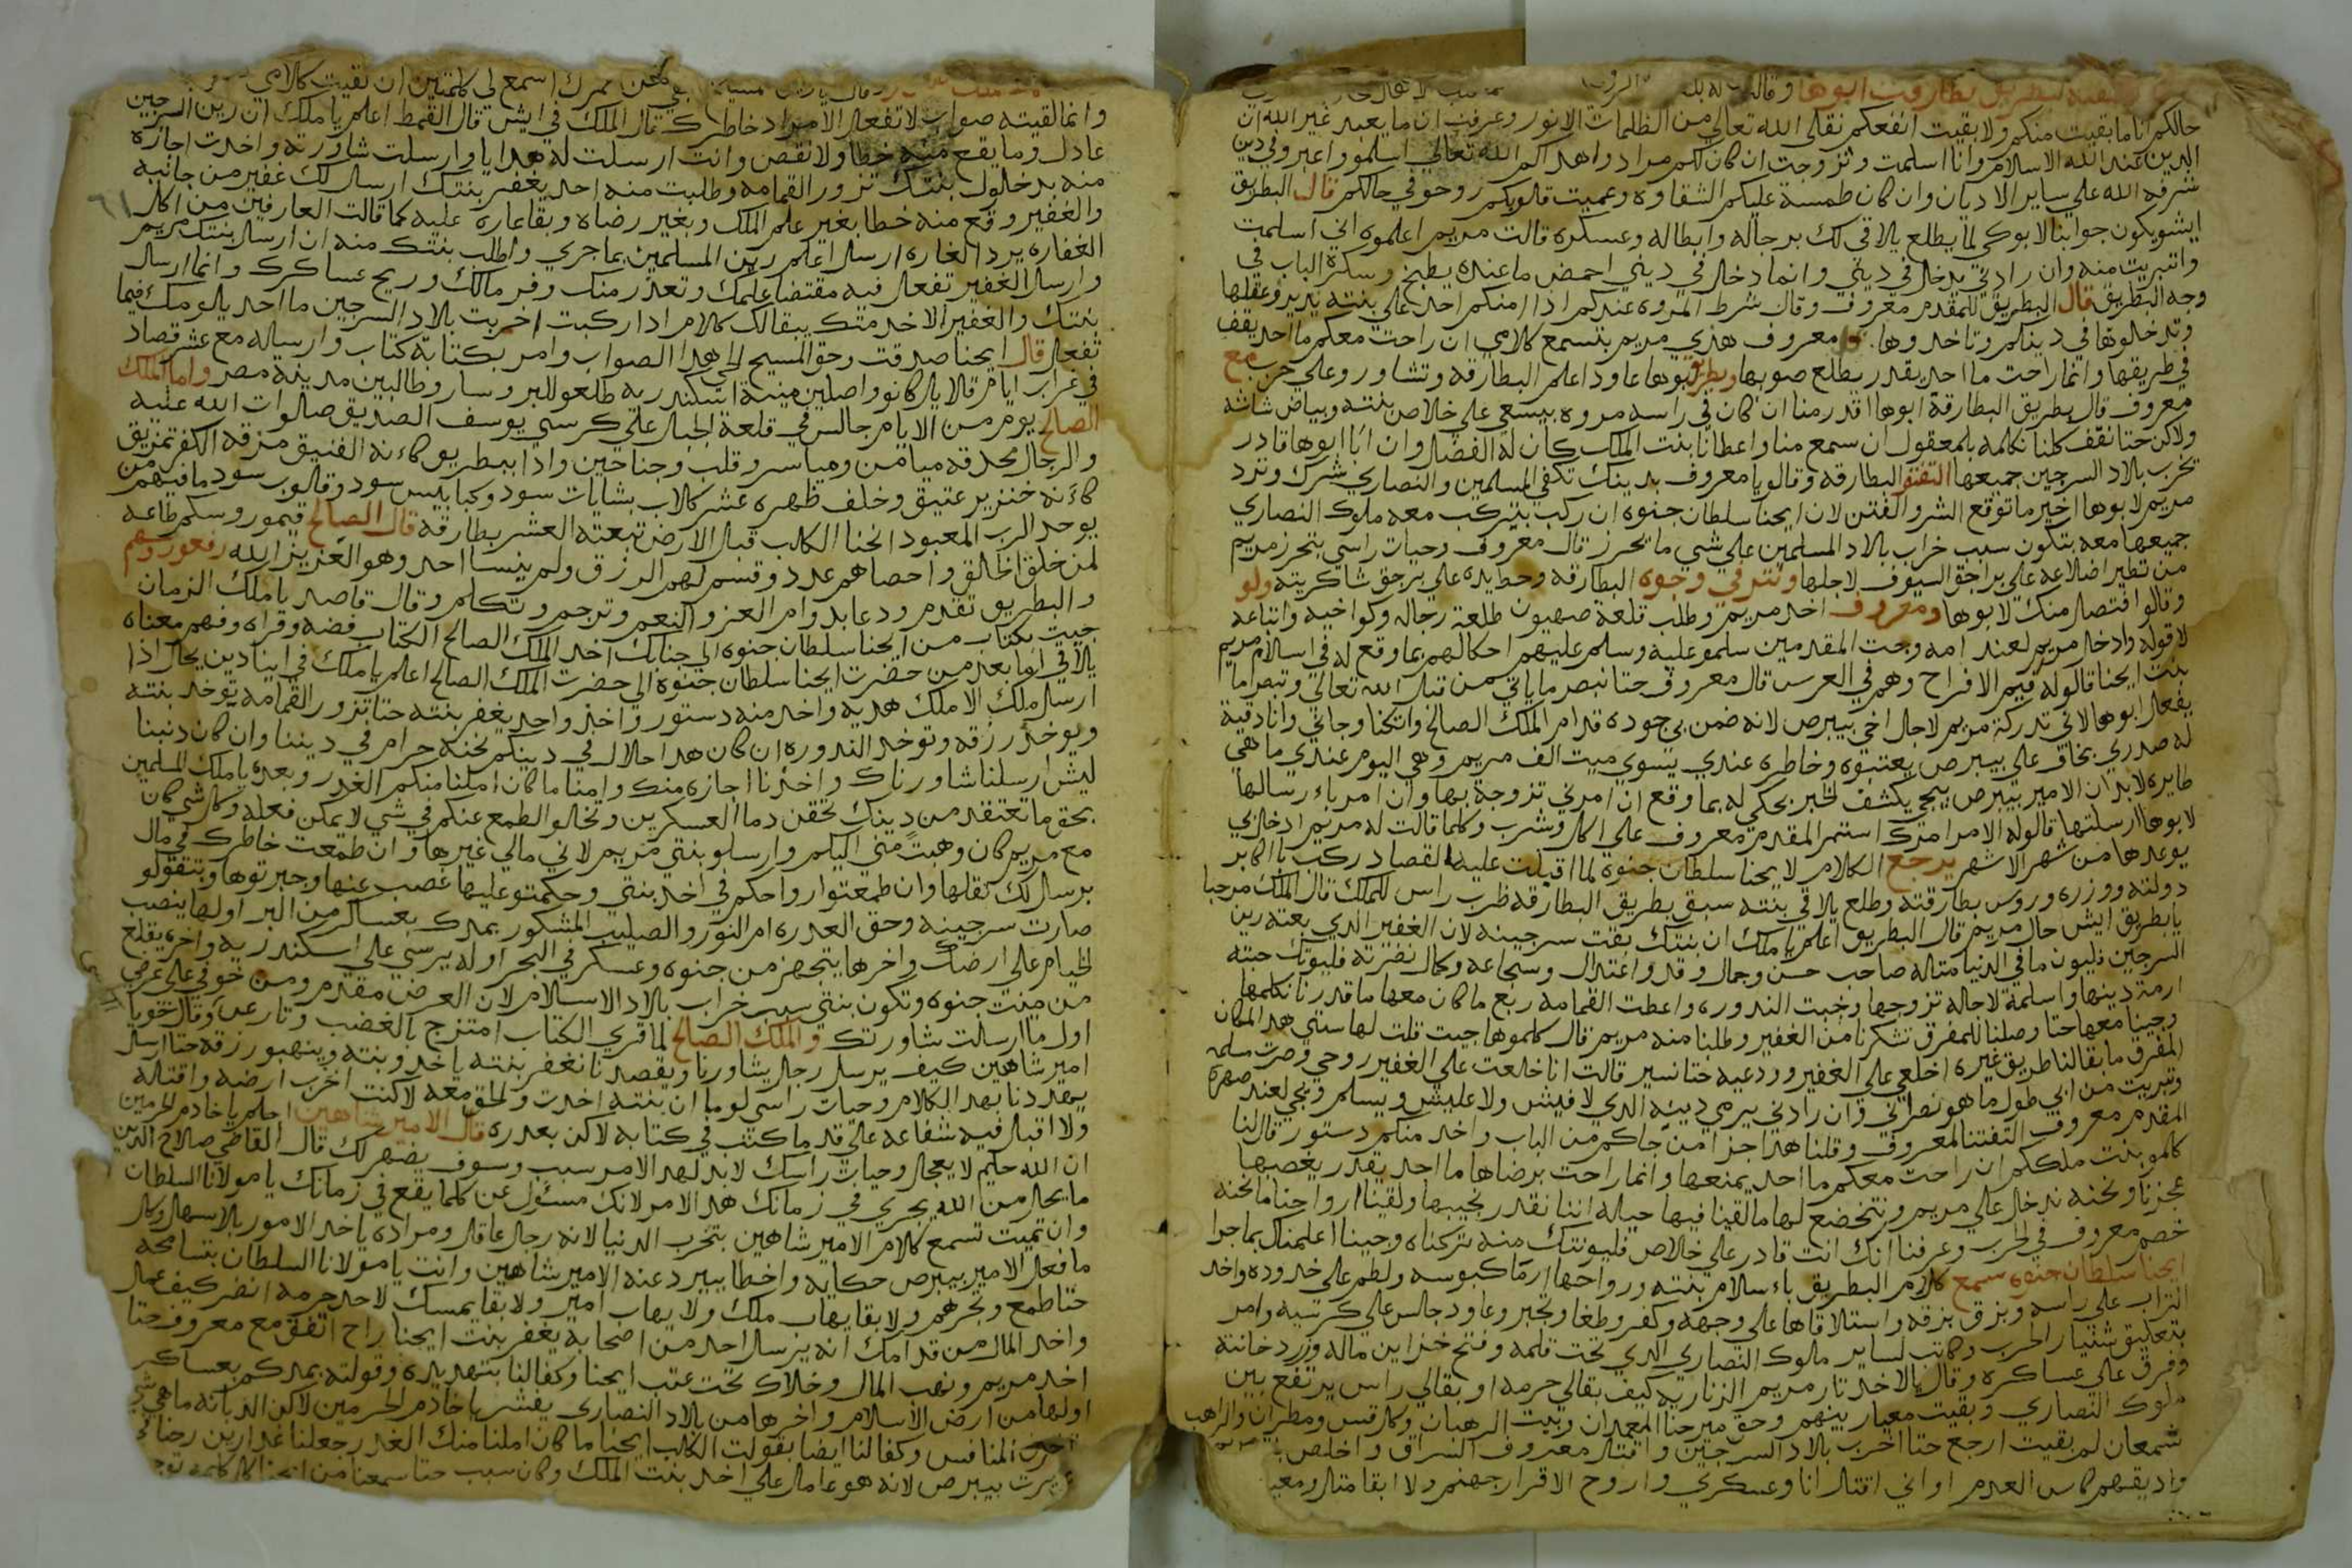 بطريق بطارقت ابوها وقالت له
حالكم انا ما بقيت منكم ولا بقيت انفعكم نقلني الله تعالي من الظلمات الا نور وعرفت ان ما يعبد غير الله ان
الدين عند الله الاسلام وانا اسلمت وتزوجت ان كان لكم مراد واهداكم الله تعالي اسلمو واعبروفي دين
شرفه الله علي ساير الاديان وان كان طمسة عليكم الشقاوه وعميت قلوبكم روحو في حالكم قال البطريق
ايشو يكون جوابنا لابوكي لما يطلع يلاقي لك برجاله وابطاله وعسكره قالت مريم اعلموه اني اسلمت
واتبريت منه وان رادني يدخل في ديني وانما دخل في ديني احمض ما عنده يطبخ وسكرة الباب في
وجه البطريق قال البطريق للمقدم معروف وقال شرط المروه عندكم اذا ا منكم احد علي بنته تريدو عقلها
وتدخلوها في دينكم وتاخدوها معروف هذي مريم بتسمع كلامي ان راحت معكم ما احد يقف
في طريقها وانما راحت ما احد يقدر يطلع صوبها وبطريق بوها عاود اعلم البطارقه وتشاورو علي حرب مع
معروف قال بطريق البطارقة ابوها اقدر منا ان كان في راسه مروه بيسعي علي خلاص بنته وبياض شاشه
ولاكن حتا نقف كلنا نكلمه بلمعقول ان سمع منا واعطانا بنت الملك كان له الفضل وان ابا ابوها قادر
يخرب بلاد السرجين جميعها التفتو البطارقه وقالو يا معروف بدينك تكفي المسلمين والنصاري شرك وترد
مريم لابوها اخير ما توقع الشر والفتن لان ايحنا سلطان جنوه ان ركب بتركب معه ملوك النصاري
جميعها معه بتكون سبب خراب بلاد المسلمين علي شي ما يحرز قال معروف وحيات راسي بتحرز مريم
من تطير اضلاعه علي براجق السيوف لاجلها ونتر في وجوه البطارقه وحط يده علي برجق شاكريته ولو
وقالو افتصل منك لابوها ومعروف اخد مريم وطلب قلعة صهيون طلعة رجاله وكواخيه واتباعه
لاقوله وادخل مريم لعند امه وجت المقدمين سلمو عليه وسلم عليهم احكالهم بما وقع له في اسلام مريم
بنت ايحنا قالوله قييم الافراح وهم في العرس قال معروف حتا نبصر ما ياتي من قبل الله تعالي وتبصر اما
يفعل ابوها لاني تدركة مريم لاجل اخي بيبرص لانه ضمن بي جوده قدام الملك الصالح واتكنا وجاني وانا دقية
له صدري بخاف علي بيبرص يعتبوه وخاطره عندي يسوي ميت الف مريم وهي اليوم عندي ما هي
طايره لابد ان الامير بيبرص يبجي يكشف الخبر بحكي له بما وقع ان امرني تزوجة بها وان امر باء رسالها
لابوها ارسلتها قالوله الامر امرك استمر المقدم معروف علي اكل وشرب وكلما قالت له مريم ادخل بي
يوعدها من شهر الا شهر يرجع الكلام لايحنا سلطان جنوه لما اقبلت عليه القصاد ركب باكابر
دولته ووزره وروس بطارقته وطلع يلاقي بنته سبق بطريق البطارقه ظرب راس للملك قال الملك مرحبا
يا بطريق ايش حال مريم قال البطريق اعلم يا ملك ان بنتك بقت سرجينه لان الغفير الدي بعته رين
السرجين فليون ما في الدنيا متاله صاحب حسن وجمال وقد واعتدال وسجاعه وكمال نضرته فليونتك حبته
ارمة دينها واسلمة لاجله تزوجها وخبت الندوره واعطت القمامه ربع ما كان معها ما قدرنا نكلمها
وجينا معها حتا وصلنا للمفرق تشكرنا من الغفير وطلبنا منه مريم قال كلموها جيت قلت لها ستي هدا المكان
المفرق ما بقالنا طريق غيره اخلعي علي الغفير وردعيه حتا نسير قالت انا خلعت علي الغفير روحي وصرت مسلمه
وتبريت من ابي طول ما هو نصراني وان رادني يرمي دينه الدي لا فيش ولا عليش ويسلم ويجي لعند صهره
المقدم معروف التفتنا لمعروف وقلنا هدا جزا من جاكم من الباب واخد منكم دستور قال لنا
كلمو بنت ملككم ان راحت معكم ما احد يمنعها وانما راحت برضاها ما احد يقدر يغصبها
عجزنا ونحنه ندخل علي مريم ونتخضع لها ما لقينا فيها حيله اننا نقدر نجيبها ولقينا ارواحنا ما نحنه
خصم معروف في الحرب وعرفنا انك انت قادر علي خلاص فليونتك منه تركناه وجينا اعلمناك بما جرا
ايحنا سلطان جنوه سمع كلام البطريق باء سلام بنته ورواحها ارما كبوسه ولطم علي خدوده واخد
التراب علي راسه وبزق بزقه واستلاقاها علي وجهه وكفر وطغا وتجبر وعاود جالس علي كرسيه وامر
بتعليق شنيار الحرب وكاتب لساير ملوك النصاري الدي تحت قلمه وفتح خزاين ماله وزرد خانته
وفرق علي عساكره وقال بالاخد تار مريم الزناريه كيف بقالي حرمه او بقالي راس يرتفع بين
ملوك النصاري وبقيت معيار بينهم وحق ميرحنا المعمدان وبيت الرهبان وكل قس ومطران والراهب
شمعان لم بقيت ارجع حتا اخرب بلاد السرجين واقتل معروف السراق واخلص
واديقهم كاس العدم او اني اقتتل انا وعسكري واروح الا قرار جهنم ولا ابقا متل ومعيا
اسمع لي كلمتين ان لقيت كلامي
وانما لقيته صواب لا تفعل الامراد خاطرك قال الملك في ايش قال القمط اعلم يا ملك ان رين السرجين
عادل وما يقع منه خطا ولا نقص وانت ارسلت له هدايا وارسلت شاورته واخدت اجازه
منه بدخلول بنتك تزور القمامه وطلبت منه احد يغفر بنتك ارسل لك غفير من جانبه
والغفير وقع منه خطا بغير علم الملك وبغير رضاه وبقا عاره عليه كما قالت العارفين من اكل
الغفاره يرد الغاره ارسل اعلم رين المسلمين بما جري واطلب بنتك منه ان ارسل بنتك مريم
وارسل الغفير تفعل فيه مقتضا علمك وتعدر منك وفر مالك وريح عساكرك وانما ارسل
بنتك والغفير الا خد متك يبقالك كلام ادا ركبت اخربت بلاد السرجين ما احد يلومك فيما
تفعل قال ايحنا صدقت وحق المسيح الحي هدا الصواب وامر بكتابة كتاب وارساله مع عشر قصاد
في غراب ايام قلايل كانو واصلين مينة اسكندريه طلعو للبر وسارو طالبين مدينة مصر واما الملك
الصالح يوم من الايام جالس في قلعة الجبل علي كرسي يوسف الصديق صلوات الله عليه
والرجال محدقه ميامن ومياسر وقلب وجناحين واذا ببطريق كاء نه الفنيق مزقه الكفر تمزيق
كاء نه خنزير عتيق وخلف ظهره عشر كلاب بشايات سود وكبابيس سود وقلوب سود ما فيهم من
يوحد الرب المعبود انحنا الكلب قبل الارض تبعته العشر بطارقه قال الصالح قيمو روسكم طاعه
لمن خلق الخلق واحصاهم عدد وقسم لهم الرزق ولم ينسا احد وهو العزيز الله رفعو روسهم
والبطريق تقدم ودعا بدوام العز والنعم وترجم وتكلم وقال قاصد يا ملك الزمان
جيت بكتاب من ايحنا سلطان جنوه الي جنابك اخد الملك الصالح الكتاب فضه وقراه وفهم معناه
يلاقي اما بعد من حضرت ايحنا سلطان جنوه الي حضرت الملك الصالح اعلم يا ملك في اينا دين يحل اذا
ارسل ملك الا ملك هديه واخد منه دستور واخد واحد يغفر بنته حتا تزور القمامه يوخد بنته
ويوخد رزقه وتوخد الندوره ان كان هدا حلال في دينكم نحنه حرام في ديننا وان كان دنبنا
ليش ارسلنا شاورناك واخدنا اجازه منك وامنا ما كان املنا منكم الغدر وبعده يا ملك المسلمين
بحق ما تعتقد من دينك تحقن دما العسكرين وتخلو الطمع عنكم في شي لا يمكن فعله وكل شي كان
مع مريم كان وهبت مني اليكم وارسلو بنتي مريم لاني مالي غيرها وان طمعت خاطرك في مال
برسل لك تقلها وان طمعتوا رواحكم في اخد بنتي وحكمتو عليها غصب عنها وجبرتوها وبتقولو
صارت سرجينه وحق العدره ام النور والصليب المشكور بمدك بعسال من البر اولها ينصب
الخيام علي ارضك واخرها يتجهز من جنوه وعسكر في البحر اوله يرسي علي اسكندريه واخره يقلع
من مينت جنوه وتكون بنتي سبب خراب بلاد الاسلام لان العرض مقدم ومن خوفي علي عرضي
اول ما ارسالت شاورتك والملك الصالح لما قري الكتاب امتزج بالغضب وتار عن وقال خويا
امير شاهين كيف يرسل رجل يشاورنا ويقصدنا نغفر بنته ياخدو بنته وينهبو رزقه حتا ارسل
يهددنا بهدا الكلام وحيات راسي لو ما ان بنته اخدت والحق معه لاكنت اخرب ارضه واقتاله
ولا اقبل فيه شفاعه علي قد ما كتب في كتابه لاكن بعدره قال الامير شاهين احلم يا خادم الحرمين
ان الله حكيم لا يعجل وحيات راسك لابد لهدا الامر سبب وسوف يضهر لك قال القاضي صلاح الدين
ما يحل من الله يجري في زمانك هدا الامر لانك مسئول عن كلما يقع في زمانك يا مولانا السلطان
وان تميت تسمع كلام الامير شاهين بتخرب الدنيا لانه رجل عاقل ومراده ياخد الامور بلاسهل وكل
ما فعل الامير بيبرص حكايه واخطا بيرد عنه الامير شاهين وانت يا مولانا السلطان بتسامحه
حتا طمع وتجرهم ولا بقا يهاب ملك ولا يهاب امير ولا بقا يمسك لاحد حرمه انضر كيف عمل
واخد المال من قدامك انه يرسل احد من اصحابه يغفر بنت ايحنا راح اتفق مع معروف حتا
اخد مريم ونهب المال وخلاك تحت عتب ايحنا وكفالنا بتهديده وقولته بمدكم بعساكر
اولها من ارض الاسلام واخرها من بلاد النصاري يفشر يا خادم الحرمين لاكن الديانه ما هي شي
اخدت المنافس وكفالنا ايضا بقولت الكلب ايحنا ما كان املنا منك الغدر جعلنا غدارين رحنا
بيبرص لانه هو عامل علي اخد بنت الملك وكان سبب حتا سمعنا من ايحنا كل كلمه توج